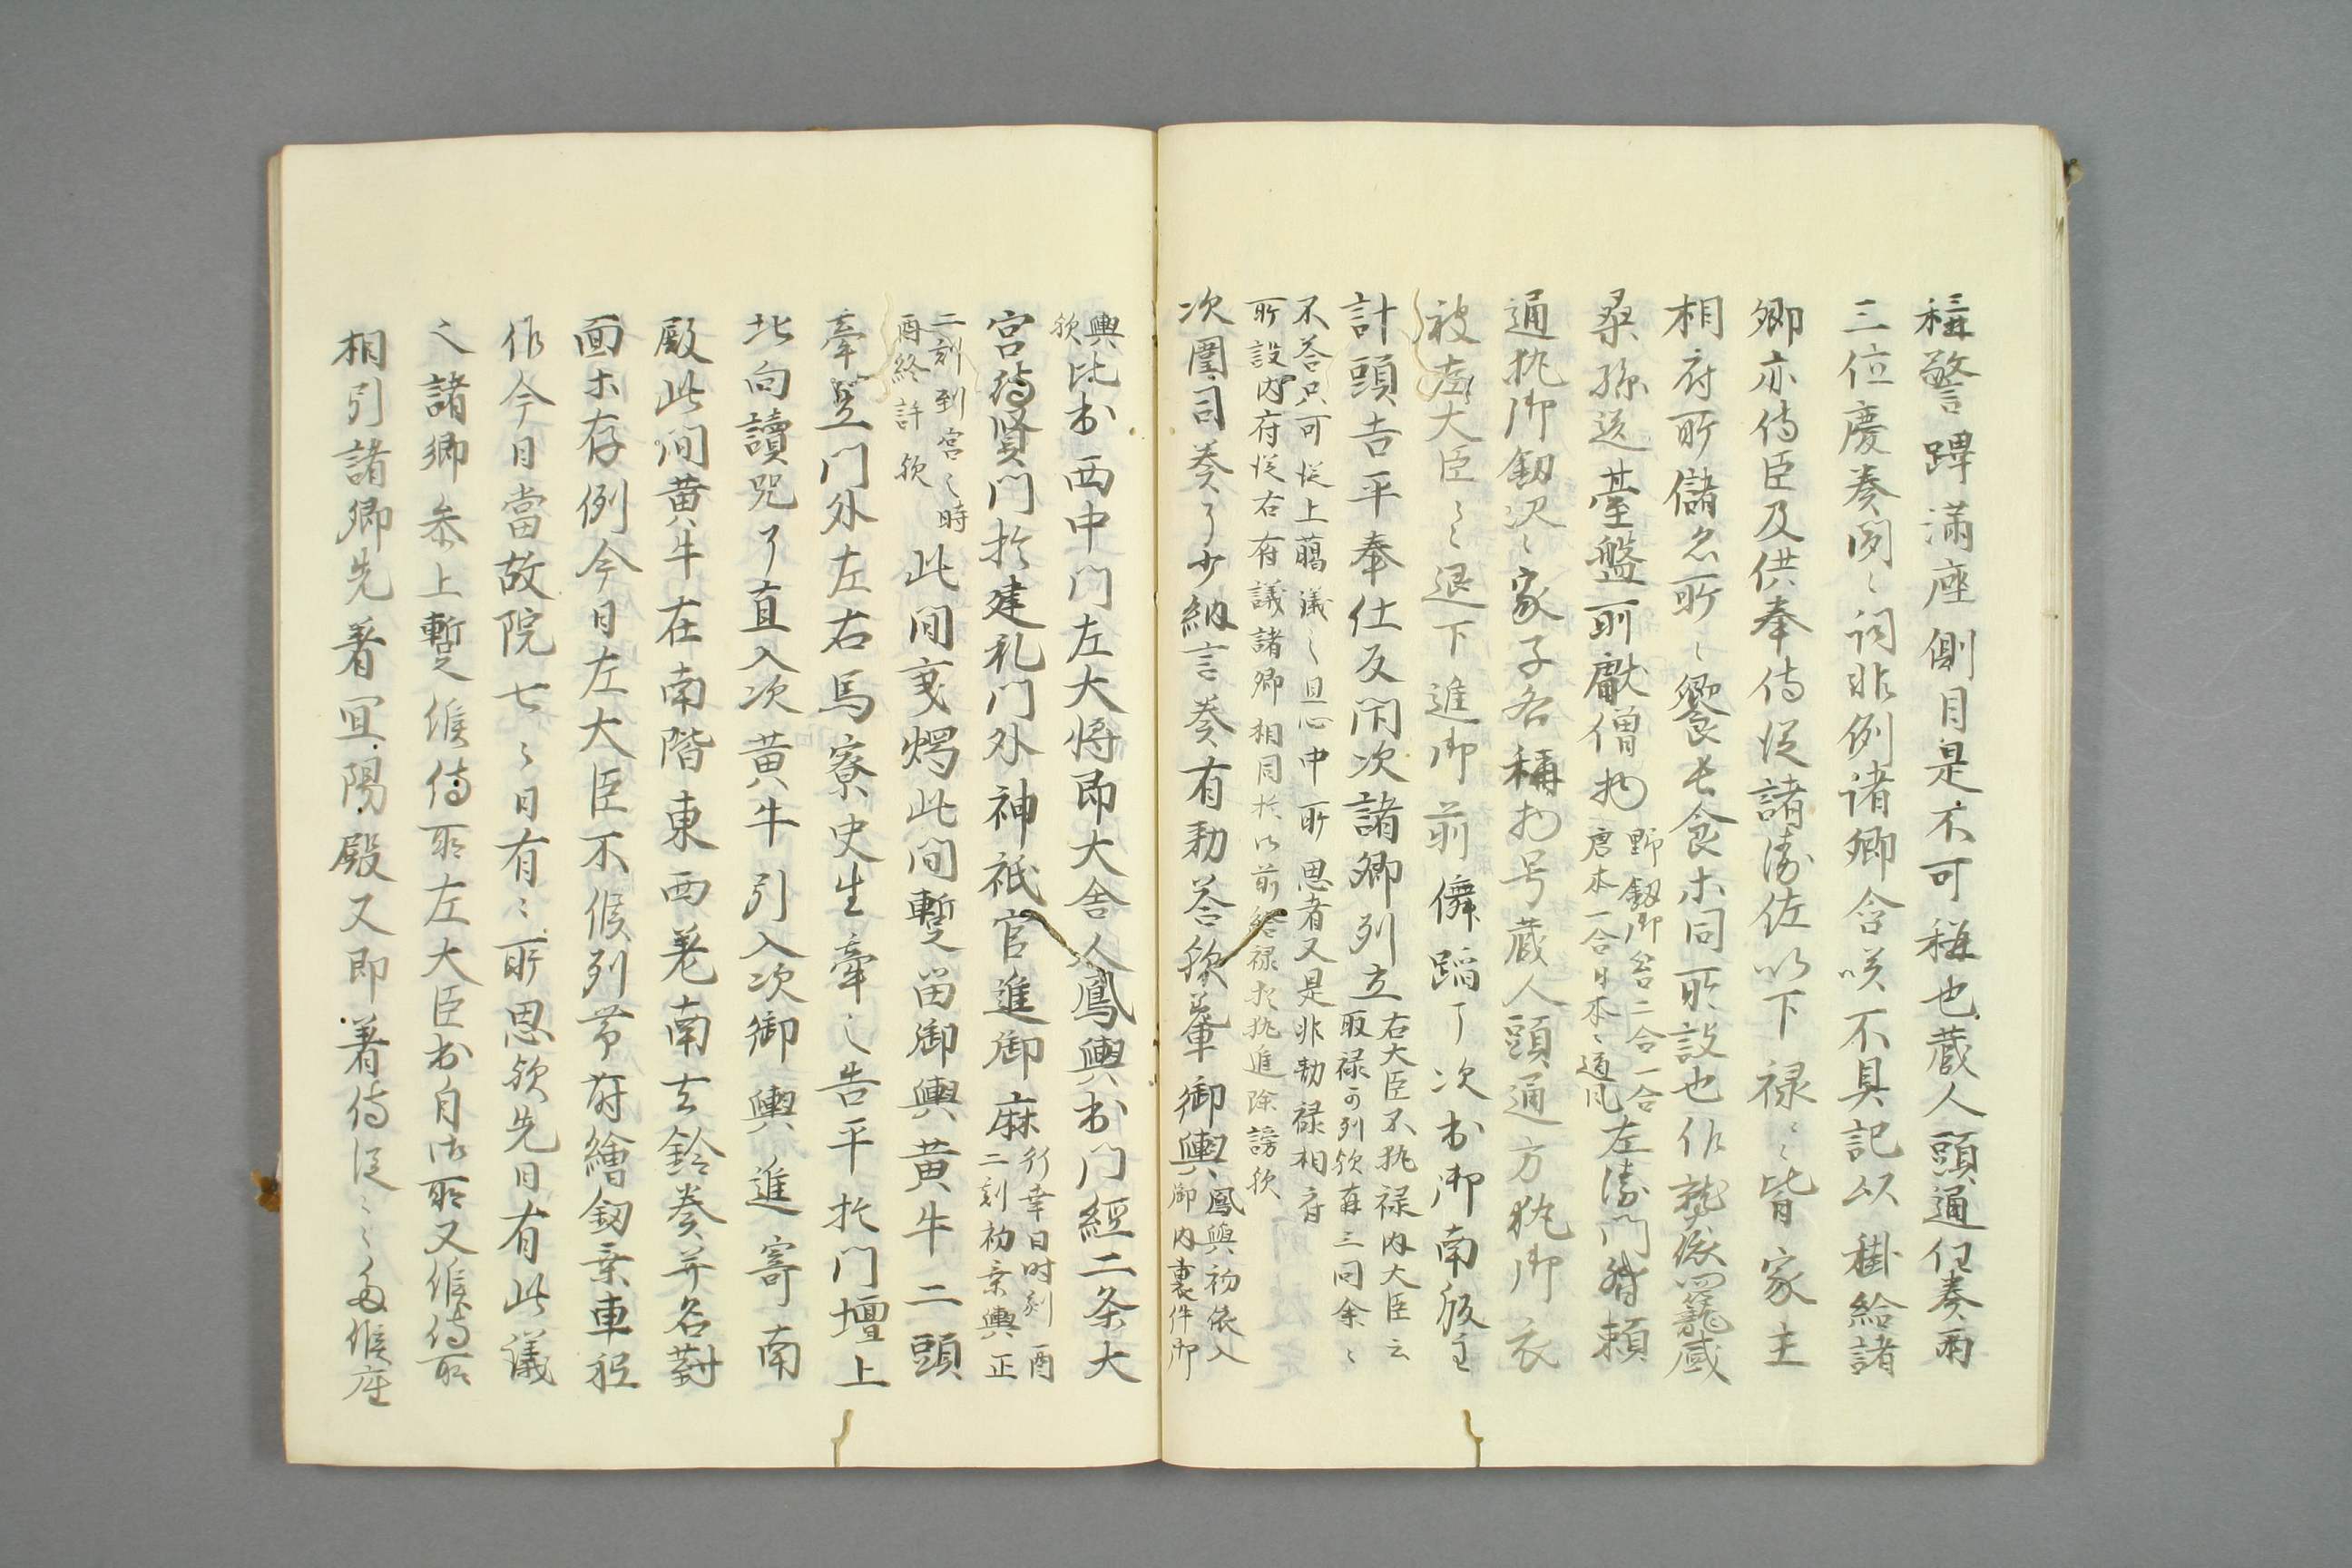 稱警蹕滿座側目是不可稱也蔵人頭通任奏両
三位慶奏聞々詞非例諸卿含咲不具記以掛給諸
卿亦侍臣及供奉侍従諸衛佐以下禄々皆家主
相府所儲忩所々饗屯食ホ同所設也作鷲保羅感
桑孫送臺盤所獻僧物
野釼御筥二合一合
唐本一合日本々道風
左衛門督頼
通執御釼次々家子各稱物号蔵人頭通方執御衣
被左大臣々退下進御前儛蹈了次出御南殿主
計頭吉平奉仕反閇次諸卿列立
右大臣不執禄内大臣云
取禄可列欤再三同余々
不答只可従上﨟議之且心中所思者又是非勅禄相府
所設内府従右府議諸卿相同於以前給禄於執進除謗欤
次圍司奏了少納言奏有勅答欤輦御輿
鳳輿初依入
御内裏件御
輿
欤
比出西中門左大将即大舎人鳳輿出門經二条大
宮待賢門於建礼門外神祇官進御麻
行幸日時刻酉
二刻初乗輿正
二刻到宮之時
酉終許欤
此間戔燭此間蹔留御輿黄牛二頭
牽立門外左右馬寮史生牽之吉平於門壇上
北向讀呪了直入次黄牛引入次御輿進寄南
殿此間黄牛在南階東西差南去鈴奏并名對
面ホ存例今日左大臣不候列帯府繪釼乗車祗
作今日當故院七々日有々所思欤先日有此議
之諸卿参上蹔候侍所左大臣出自御所又候侍所
相引諸卿先著冝陽殿又即著侍従々々多候座